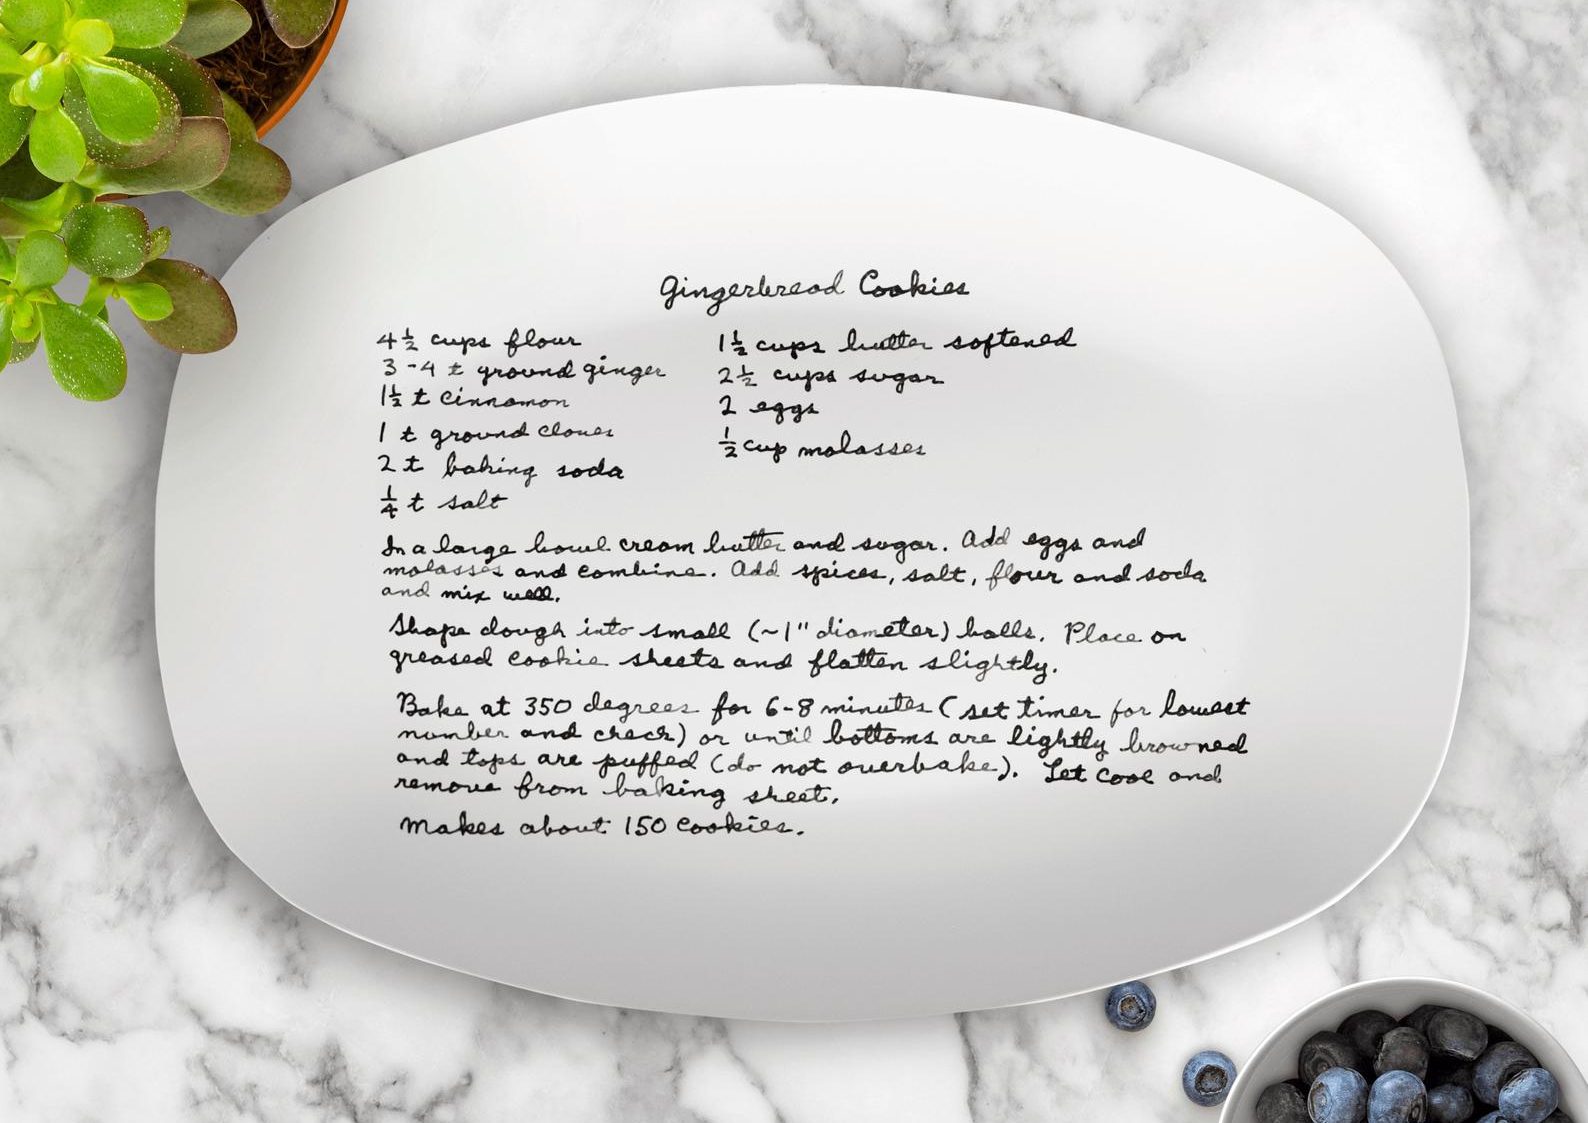 Gingerbread Cookies
4 1/2 cups flour
3-4 t ground ginger
1 1/2 t cinnamon
1 t ground cloves
2 t baking soda
1/4 t salt
1 1/2 cups butter softened
2 1/2 cups sugar
2 eggs
1/2 cup molasses
In a large bowl cream butter and sugar. Add eggs and
molasses and combine. Add spices, salt, flour and soda
and mix well.
Shape dough into small (~1" diameter) balls. Place on
greased cookie sheets and flatten slightly.
Bake at 350 degrees for 6-8 minutes (set timer for lowest
number and check) or until bottoms are lightly browned
and tops are puffed (do not overbake). Let cool and
remove from baking sheet.
Makes about 150 cookies.